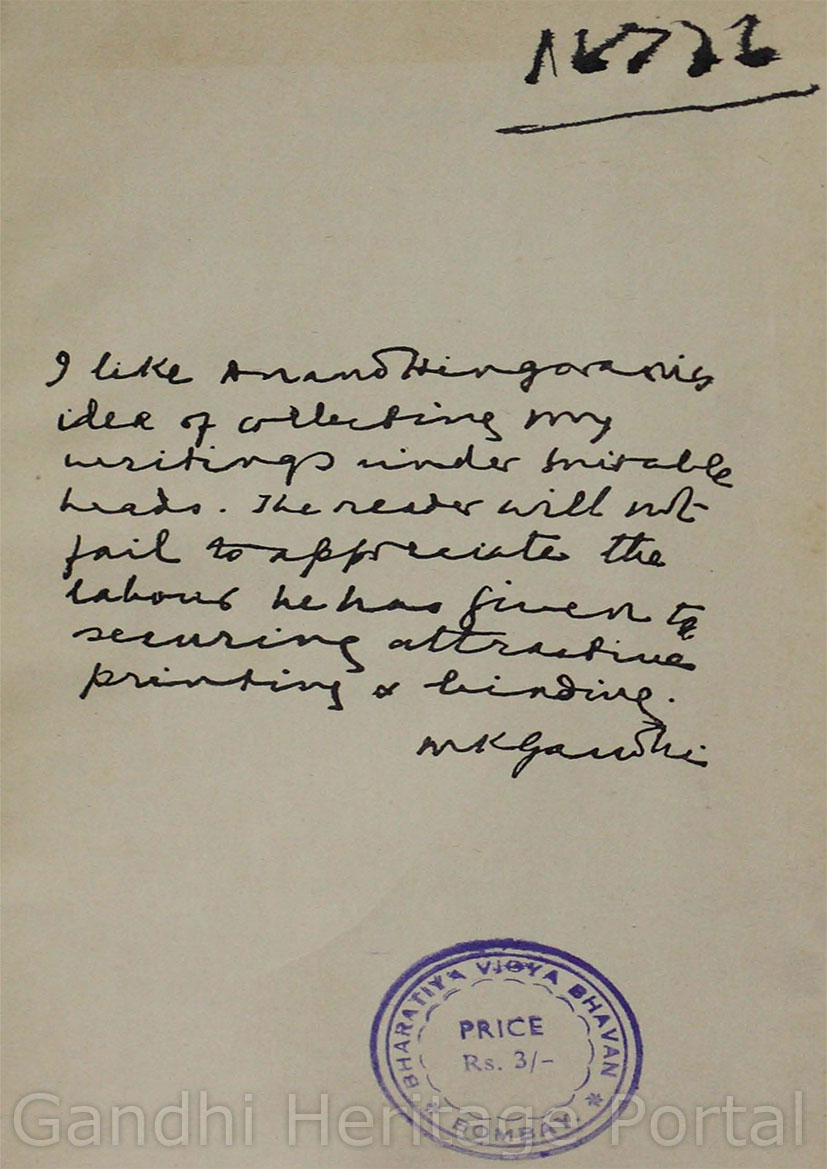 I like Anand Hingorani's
idea of collecting my
writings under suitable
heads. The reader will not
fail to appreciate the
labour he has given to
securing attractive
printing & binding.
MKGandhi
BHARATIYA VIDYA BHAVAN
PRICE
Rs. 3/-
* BOMBAY. *
Gandhi Heritage Portal